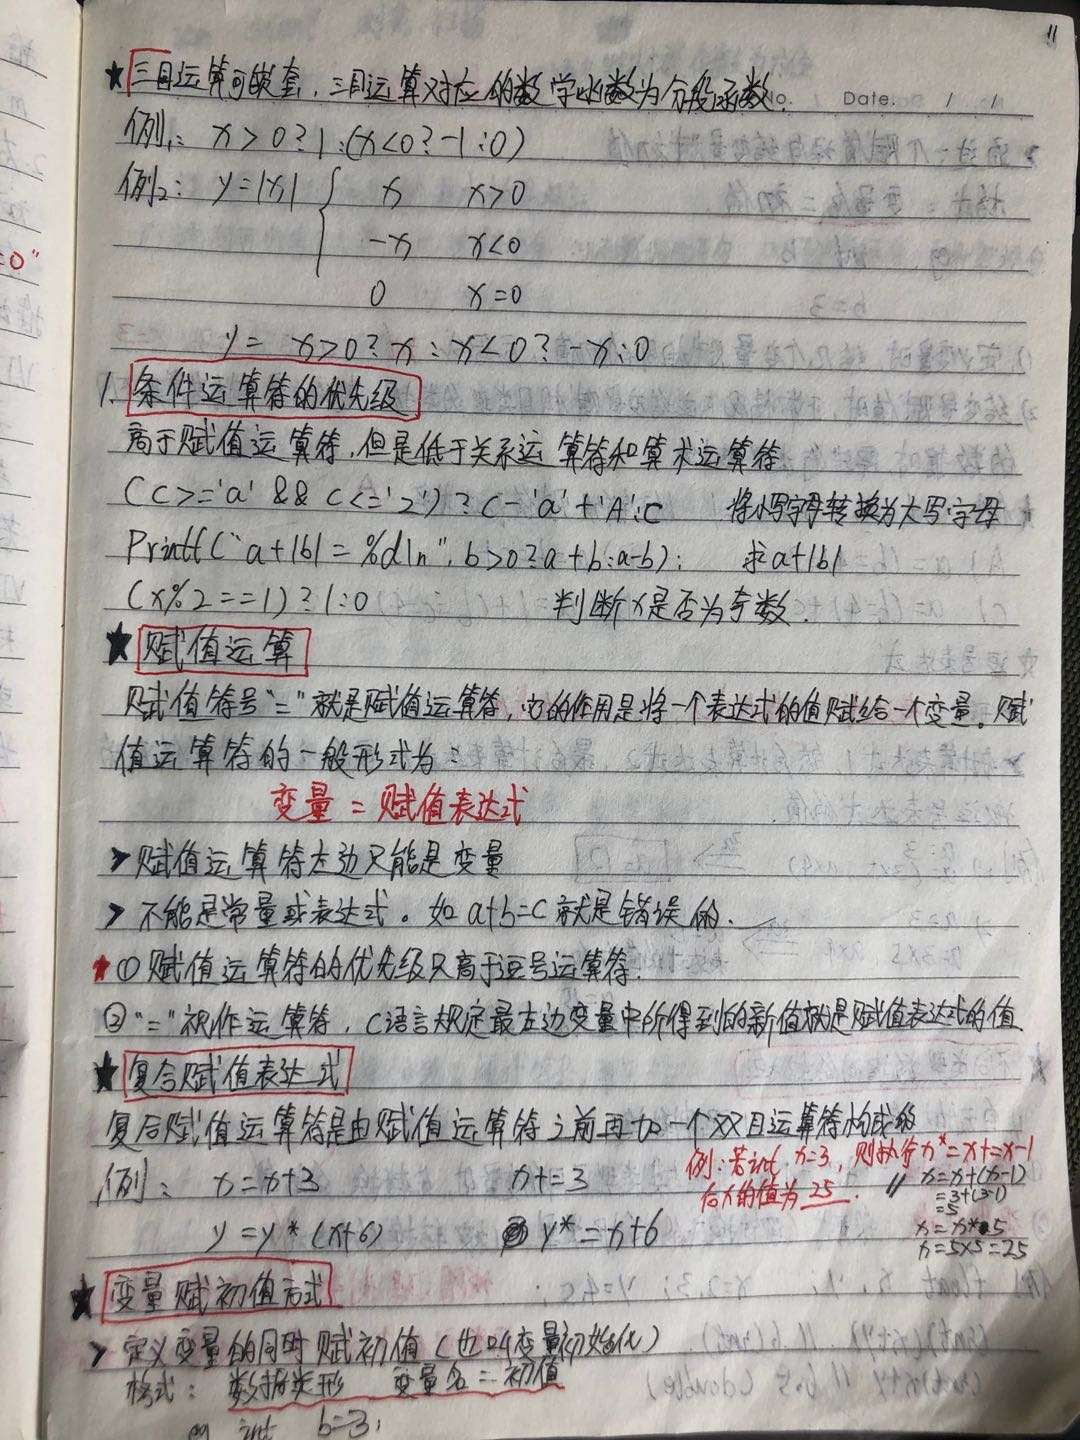 11
No.   Date.   /   /
★三目运算可嵌套，三目运算对应的数学函数为分段函数.
例1: x>0?1:(x<0?-1:0)
例2: y=|x| { x   x>0
-x   x<0
0   x=0
y= x>0?x:x<0?-x:0
1. 条件运算符的优先级
高于赋值运算符,但是低于关系运算符和算术运算符
(c>='a' && c<='z')?c-'a'+'A':c   将小写字母转换为大写字母
Printf("a+|b|=%d\n",b>0?a+b:a-b);   求a+|b|
(x%2==1)?1:0   判断x是否为奇数.
★赋值运算
赋值符号"="就是赋值运算符,它的作用是将一个表达式的值赋给一个变量。赋
值运算符的一般形式为:
变量=赋值表达式
➢赋值运算符左边只能是变量
➢不能是常量或表达式。如a+b=c就是错误的.
★①赋值运算符的优先级只高于逗号运算符.
②"="视作运算符,C语言规定最左边变量中所得到的新值就是赋值表达式的值
★复合赋值表达式
复合赋值运算符是由赋值运算符之前再加一个双目运算符构成的
例: x=x+3   x+=3
y=y*(x+6)   y*=x+6
例:若int x=3,则执行x*=x+=x-1
后x的值为 25 . // x=x+(x-1)
=3+(3-1)
=5
x=x*5
x=5x5=25
★变量赋初值方式
➢定义变量的同时赋初值(也叫变量初始化)
格式: 数据类形 变量名=初值
eg int b=3;
=0"